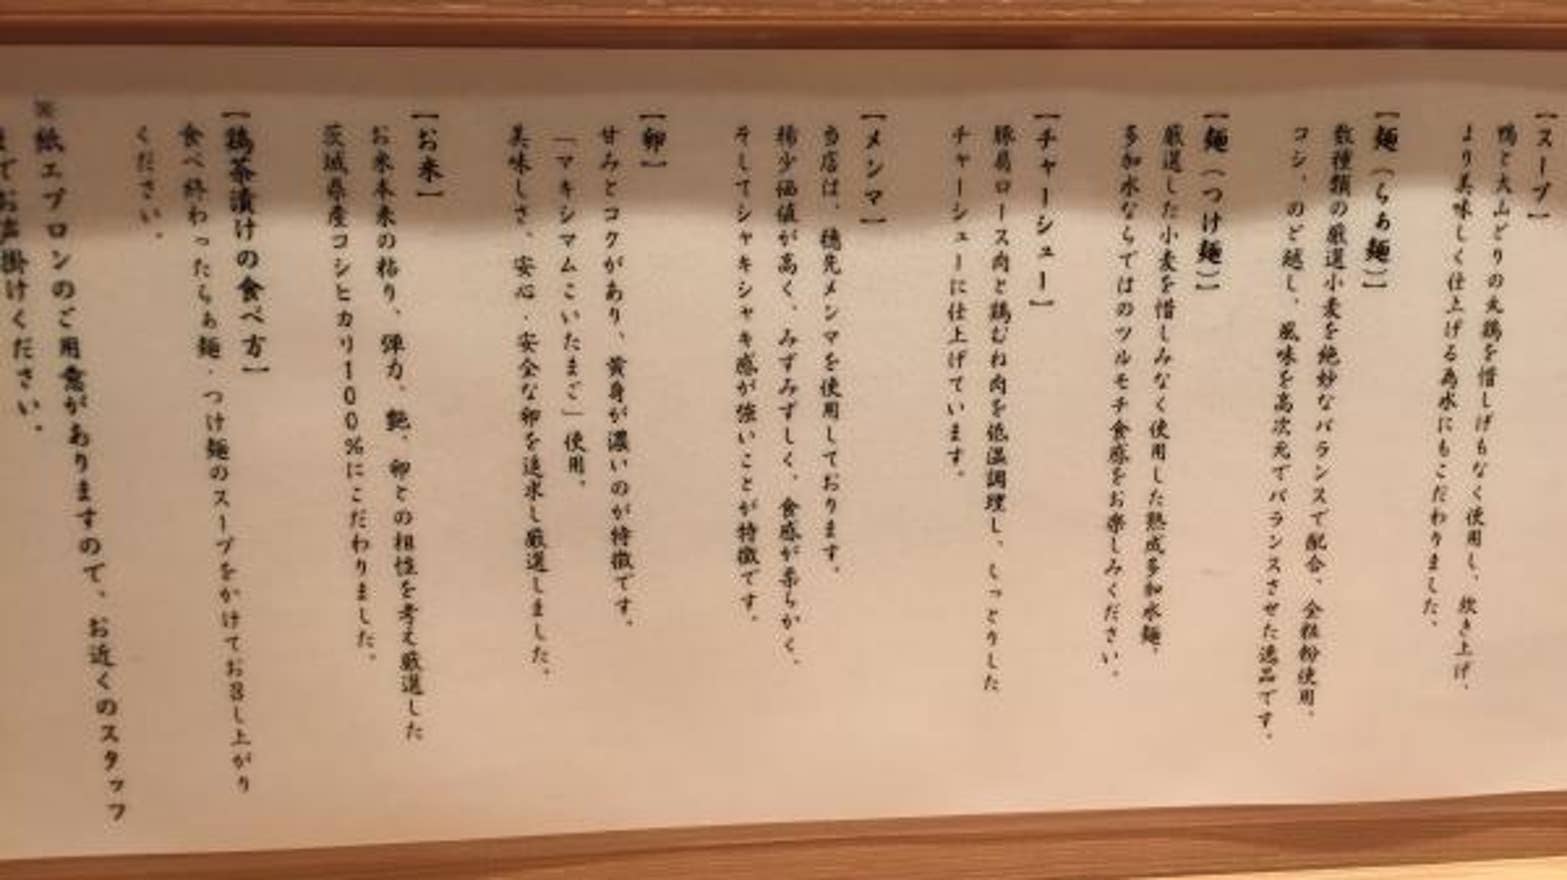 【スープ】
鴨と大山どりの丸鶏を惜しげもなく使用し、炊き上げ、
より美味しく仕上げる為水にもこだわりました。
【麺（らぁ麺）】
数種類の厳選小麦を絶妙なバランスで配合、全粒粉使用。
コシ、のど越し、風味を高次元でバランスさせた逸品です。
【麺（つけ麺）】
厳選した小麦を惜しみなく使用した熟成多加水麺。
多加水ならではのツルモチ食感をお楽しみください。
【チャーシュー】
豚肩ロース肉と鶏むね肉を低温調理し、しっとりした
チャーシューに仕上げています。
【メンマ】
当店は、穂先メンマを使用しております。
稀少価値が高く、みずみずしく、食感が柔らかく、
そしてシャキシャキ感が強いことが特徴です。
【卵】
甘みとコクがあり、黄身が濃いのが特徴です。
「マキシマムこいたまご」使用。
美味しさ、安心・安全な卵を追求し厳選しました。
【お米】
お米本来の粘り、弾力、艶、卵との相性を考え厳選した
茨城県産コシヒカリ100%にこだわりました。
【鶏茶漬けの食べ方】
食べ終わったらぁ麺・つけ麺のスープをかけてお召し上がり
ください。
※紙エプロンのご用意がありますので、お近くのスタッフ
までお声掛けください。